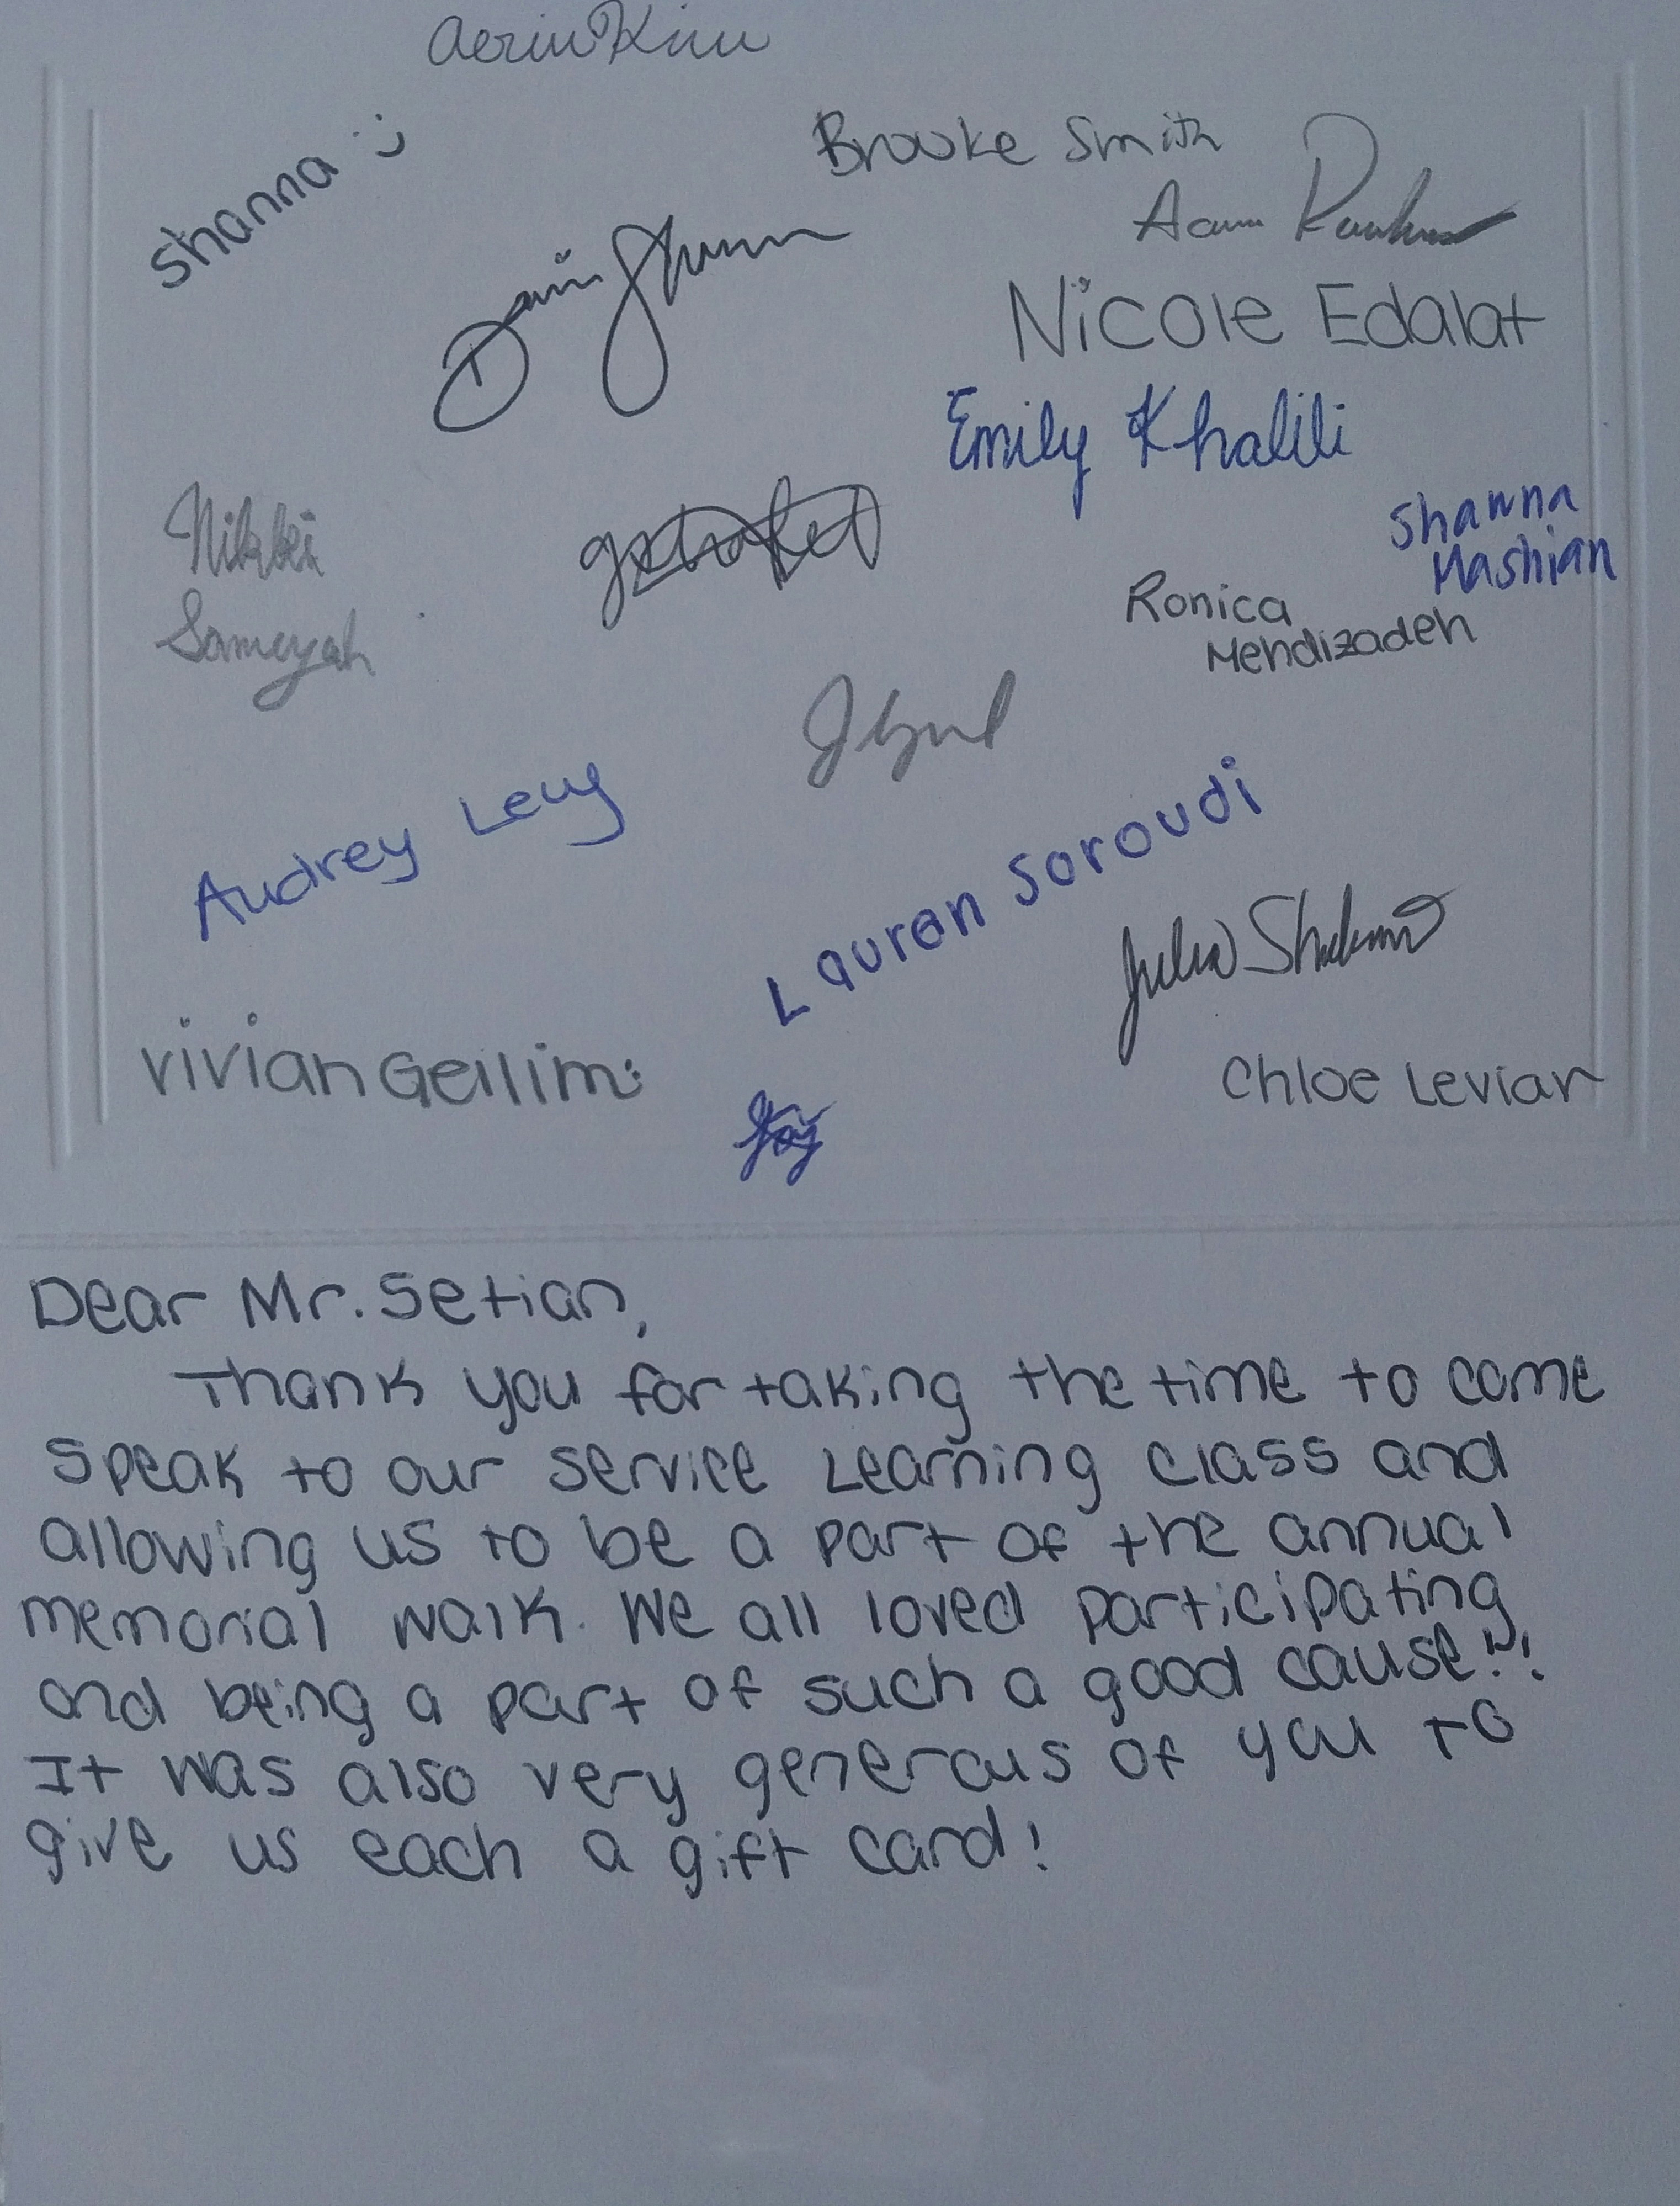 Aerin Kim
Shanna :)
Brooke Smith
Nicole Edalat
Emily Khalili
Shawna
Mashian
Nikki
Sameyah
Ronica
Mehdizadeh
Audrey Levy
Lauren Soroudi
Julia
Vivian Geilim:
Chloe Levian
Dear Mr. Setian,
Thank you for taking the time to come
speak to our service Learning class and
allowing us to be a part of the annual
memorial walk. We all loved participating
and being a part of such a good cause!!!
It was also very generous of you to
give us each a gift card!